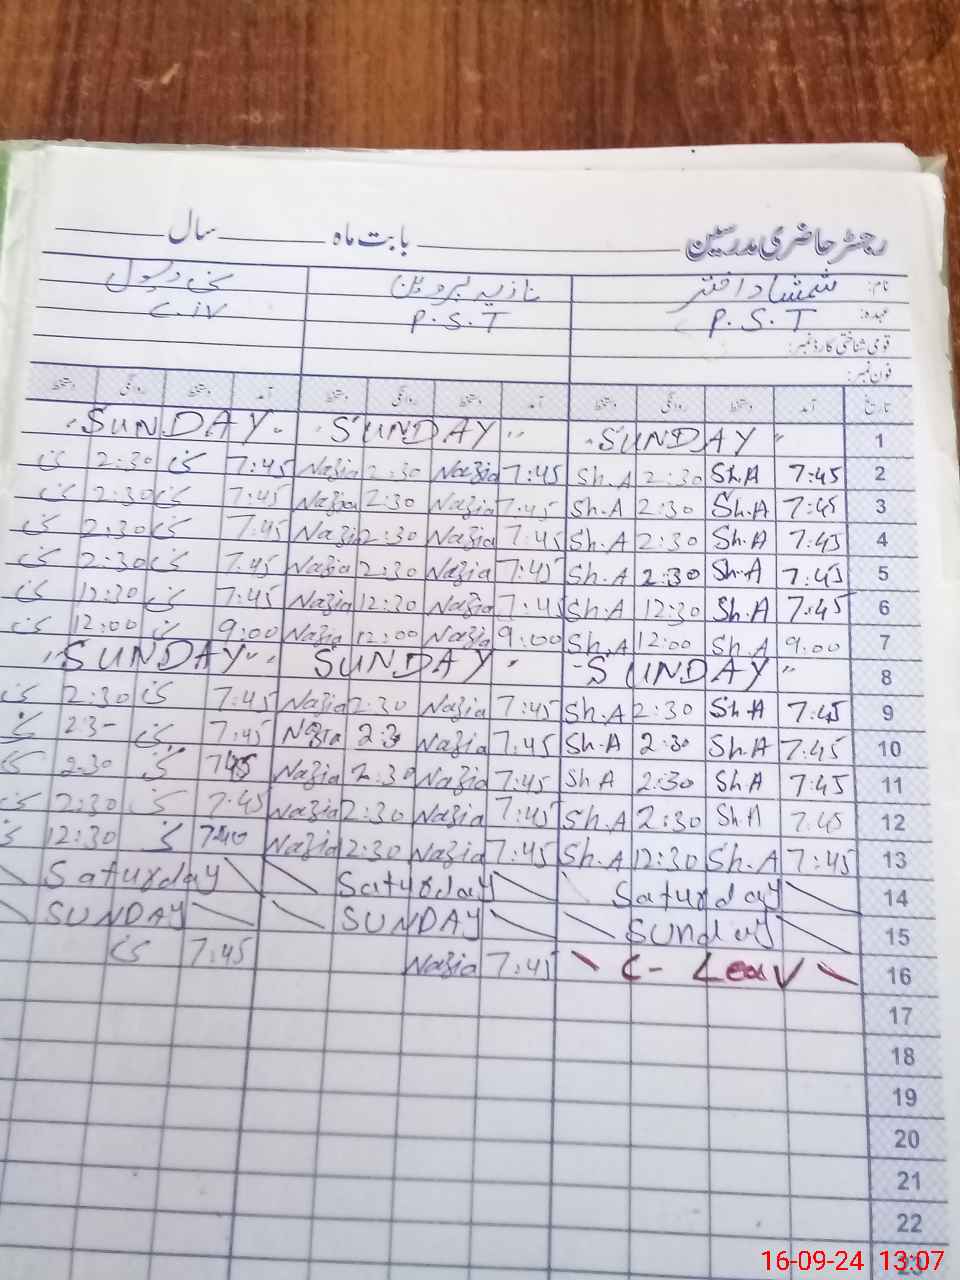 رجسٹر حاضری مدرسین بابت ماہ سال
نام: شمشاد اختر نازیہ پروین سخی رسول
عہدہ: P.S.T P.S.T
قومی شناختی کارڈ نمبر:
فون نمبر:
تاریخ آمد دستخط روانگی دستخط آمد دستخط روانگی دستخط آمد دستخط روانگی دستخط
1 "SUNDAY" "SUNDAY" "SUNDAY"
2 7:45 Sh.A 2:30 Sh.A 7:45 Nazia 2:30 Nazia 7:45 2:30
3 7:45 Sh.A 2:30 Sh.A 7:45 Nazia 2:30 Nazia 7:45 2:30
4 7:45 Sh.A 2:30 Sh.A 7:45 Nazia 2:30 Nazia 7:45 2:30
5 7:45 Sh.A 2:30 Sh.A 7:45 Nazia 2:30 Nazia 7:45 2:30
6 7:45 Sh.A 12:30 Sh.A 7:45 Nazia 12:30 Nazia 7:45 12:30
7 9:00 Sh.A 12:00 Sh.A 9:00 Nazia 12:00 Nazia 9:00 12:00
8 "SUNDAY" SUNDAY "SUNDAY"
9 7:45 Sh.A 2:30 Sh.A 7:45 Nazia 2:30 Nazia 7:45 2:30
10 7:45 Sh.A 2:30 Sh.A 7:45 Nazia 2:3 Nazia 7:45 2:3-
11 7:45 Sh.A 2:30 Sh.A 7:45 Nazia 2:30 Nazia 745 2:30
12 7:45 Sh.A 2:30 Sh.A 7:45 Nazia 2:30 Nazia 7:45 2:30
13 7:45 Sh.A 12:30 Sh.A 7:45 Nazia 12:30 Nazia 740 12:30
14 Saturday Saturday Saturday
15 Sunday SUNDAY SUNDAY
16 C- Leav 7:45 Nazia 7:45
17
18
19
20
21
22
23
16-09-24 13:07